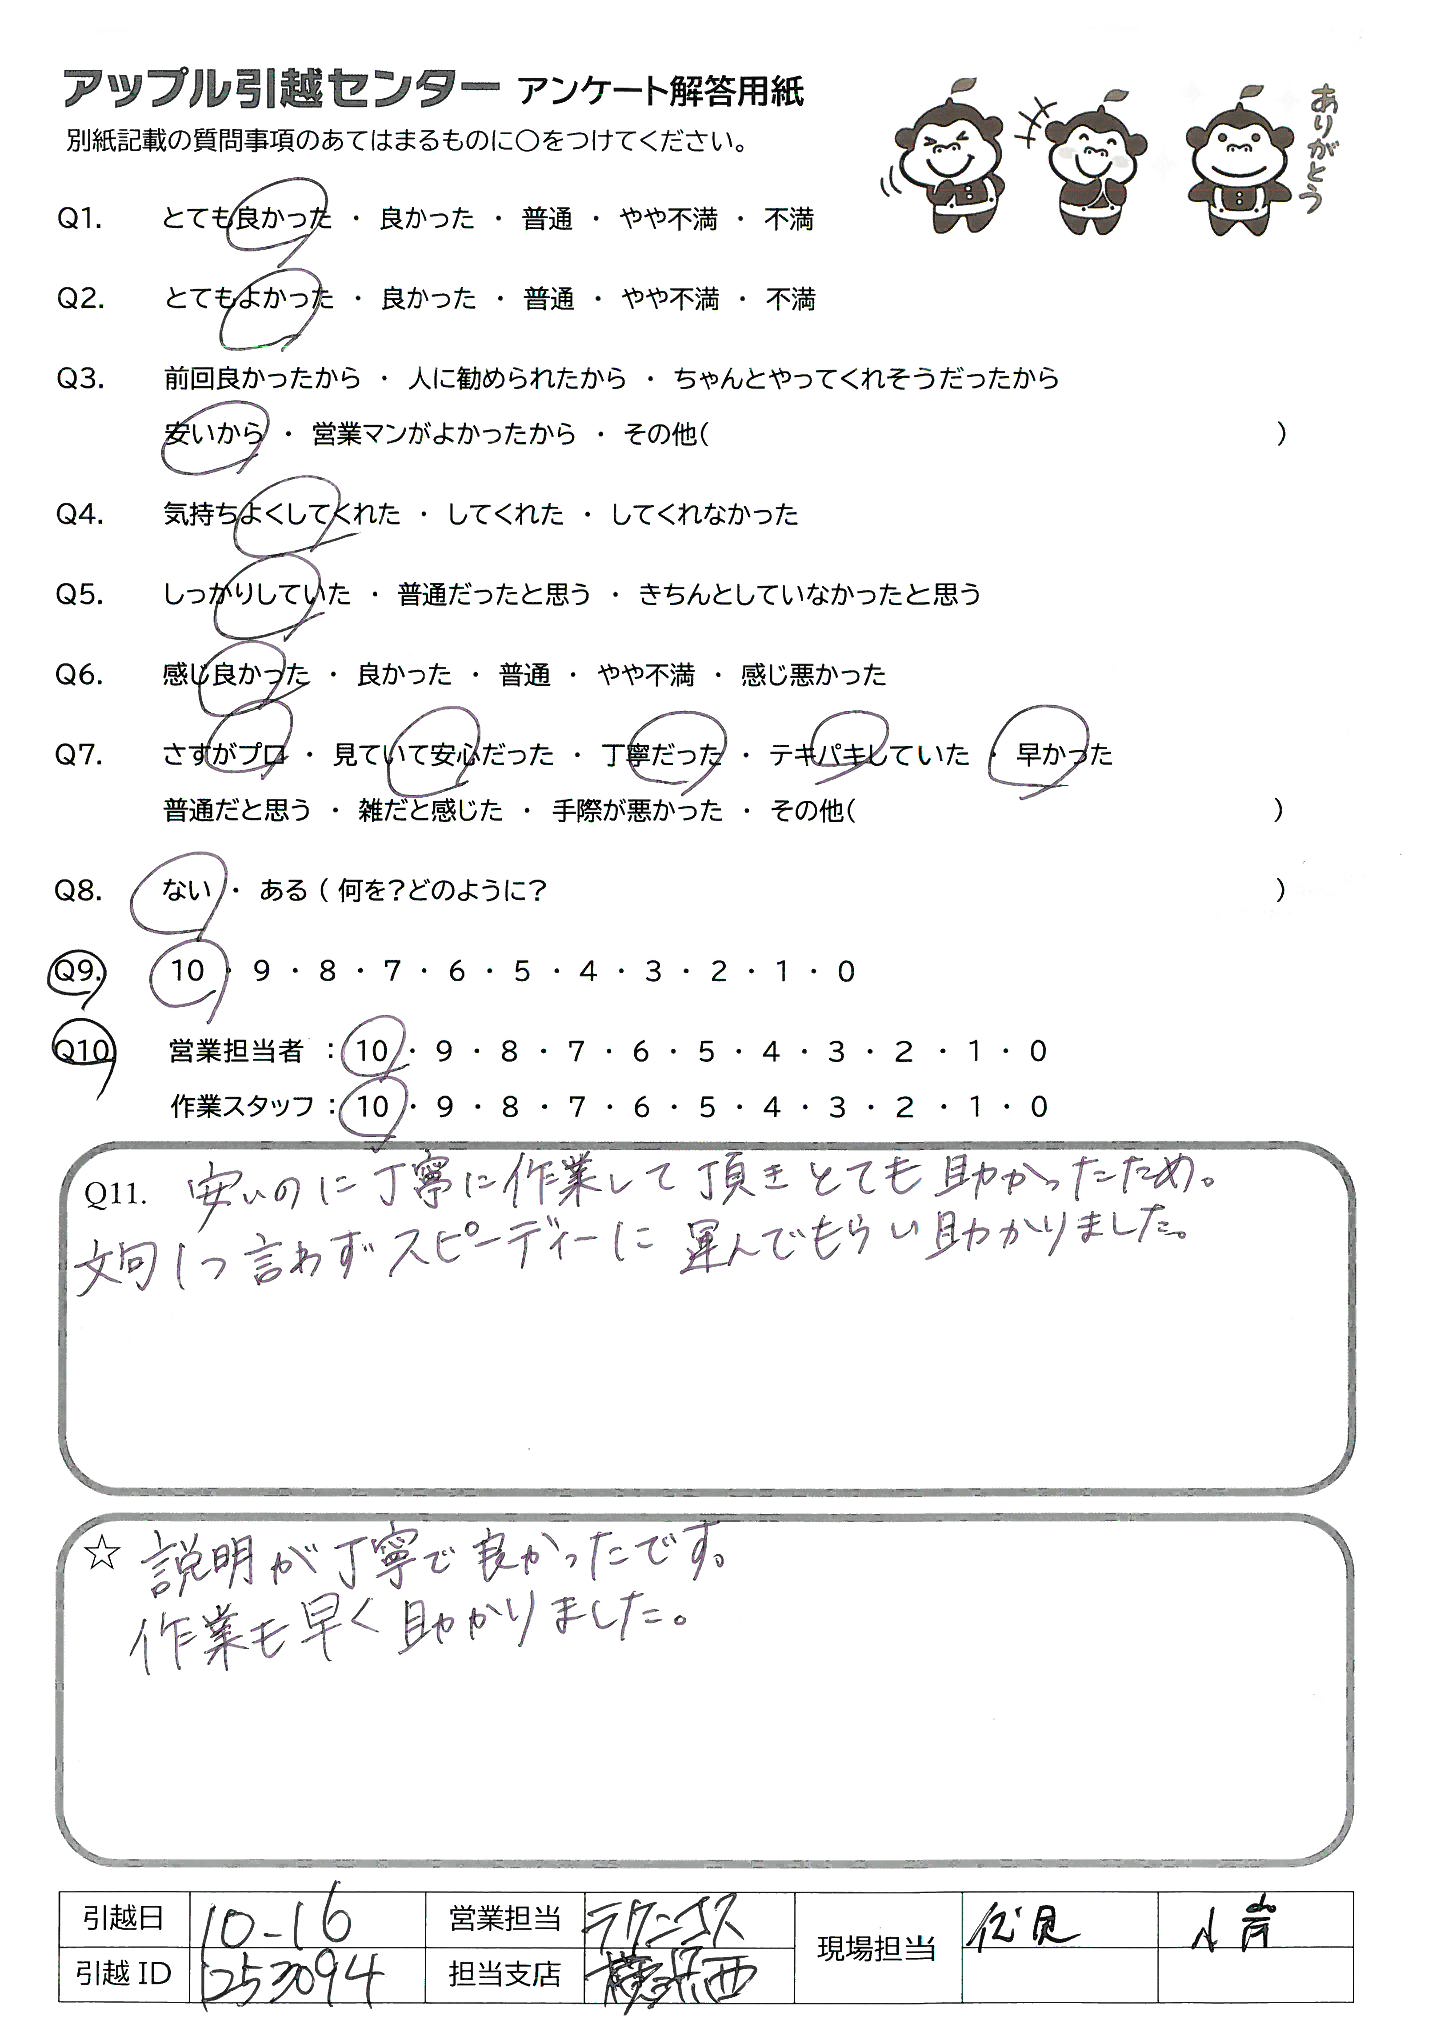 アップル引越センター アンケート解答用紙
別紙記載の質問事項のあてはまるものに○をつけてください。
ありがとう
Q1. とても良かった ・ 良かった ・ 普通 ・ やや不満 ・ 不満
Q2. とてもよかった ・ 良かった ・ 普通 ・ やや不満 ・ 不満
Q3. 前回良かったから ・ 人に勧められたから ・ ちゃんとやってくれそうだったから
安いから ・ 営業マンがよかったから ・ その他( )
Q4. 気持ちよくしてくれた ・ してくれた ・ してくれなかった
Q5. しっかりしていた ・ 普通だったと思う ・ きちんとしていなかったと思う
Q6. 感じ良かった ・ 良かった ・ 普通 ・ やや不満 ・ 感じ悪かった
Q7. さすがプロ ・ 見ていて安心だった ・ 丁寧だった ・ テキパキしていた ・ 早かった
普通だと思う ・ 雑だと感じた ・ 手際が悪かった ・ その他( )
Q8. ない ・ ある ( 何を?どのように? )
Q9. 10 ・ 9 ・ 8 ・ 7 ・ 6 ・ 5 ・ 4 ・ 3 ・ 2 ・ 1 ・ 0
Q10 営業担当者 : 10 ・ 9 ・ 8 ・ 7 ・ 6 ・ 5 ・ 4 ・ 3 ・ 2 ・ 1 ・ 0
作業スタッフ : 10 ・ 9 ・ 8 ・ 7 ・ 6 ・ 5 ・ 4 ・ 3 ・ 2 ・ 1 ・ 0
Q11. 安いのに丁寧に作業して頂きとても助かったため。
文句1つ言わずスピーディーに運んでもらい助かりました。
☆ 説明が丁寧で良かったです。
作業も早く助かりました。
引越日 10-16 営業担当 現場担当 伏見
引越ID 1253094 担当支店 横浜西